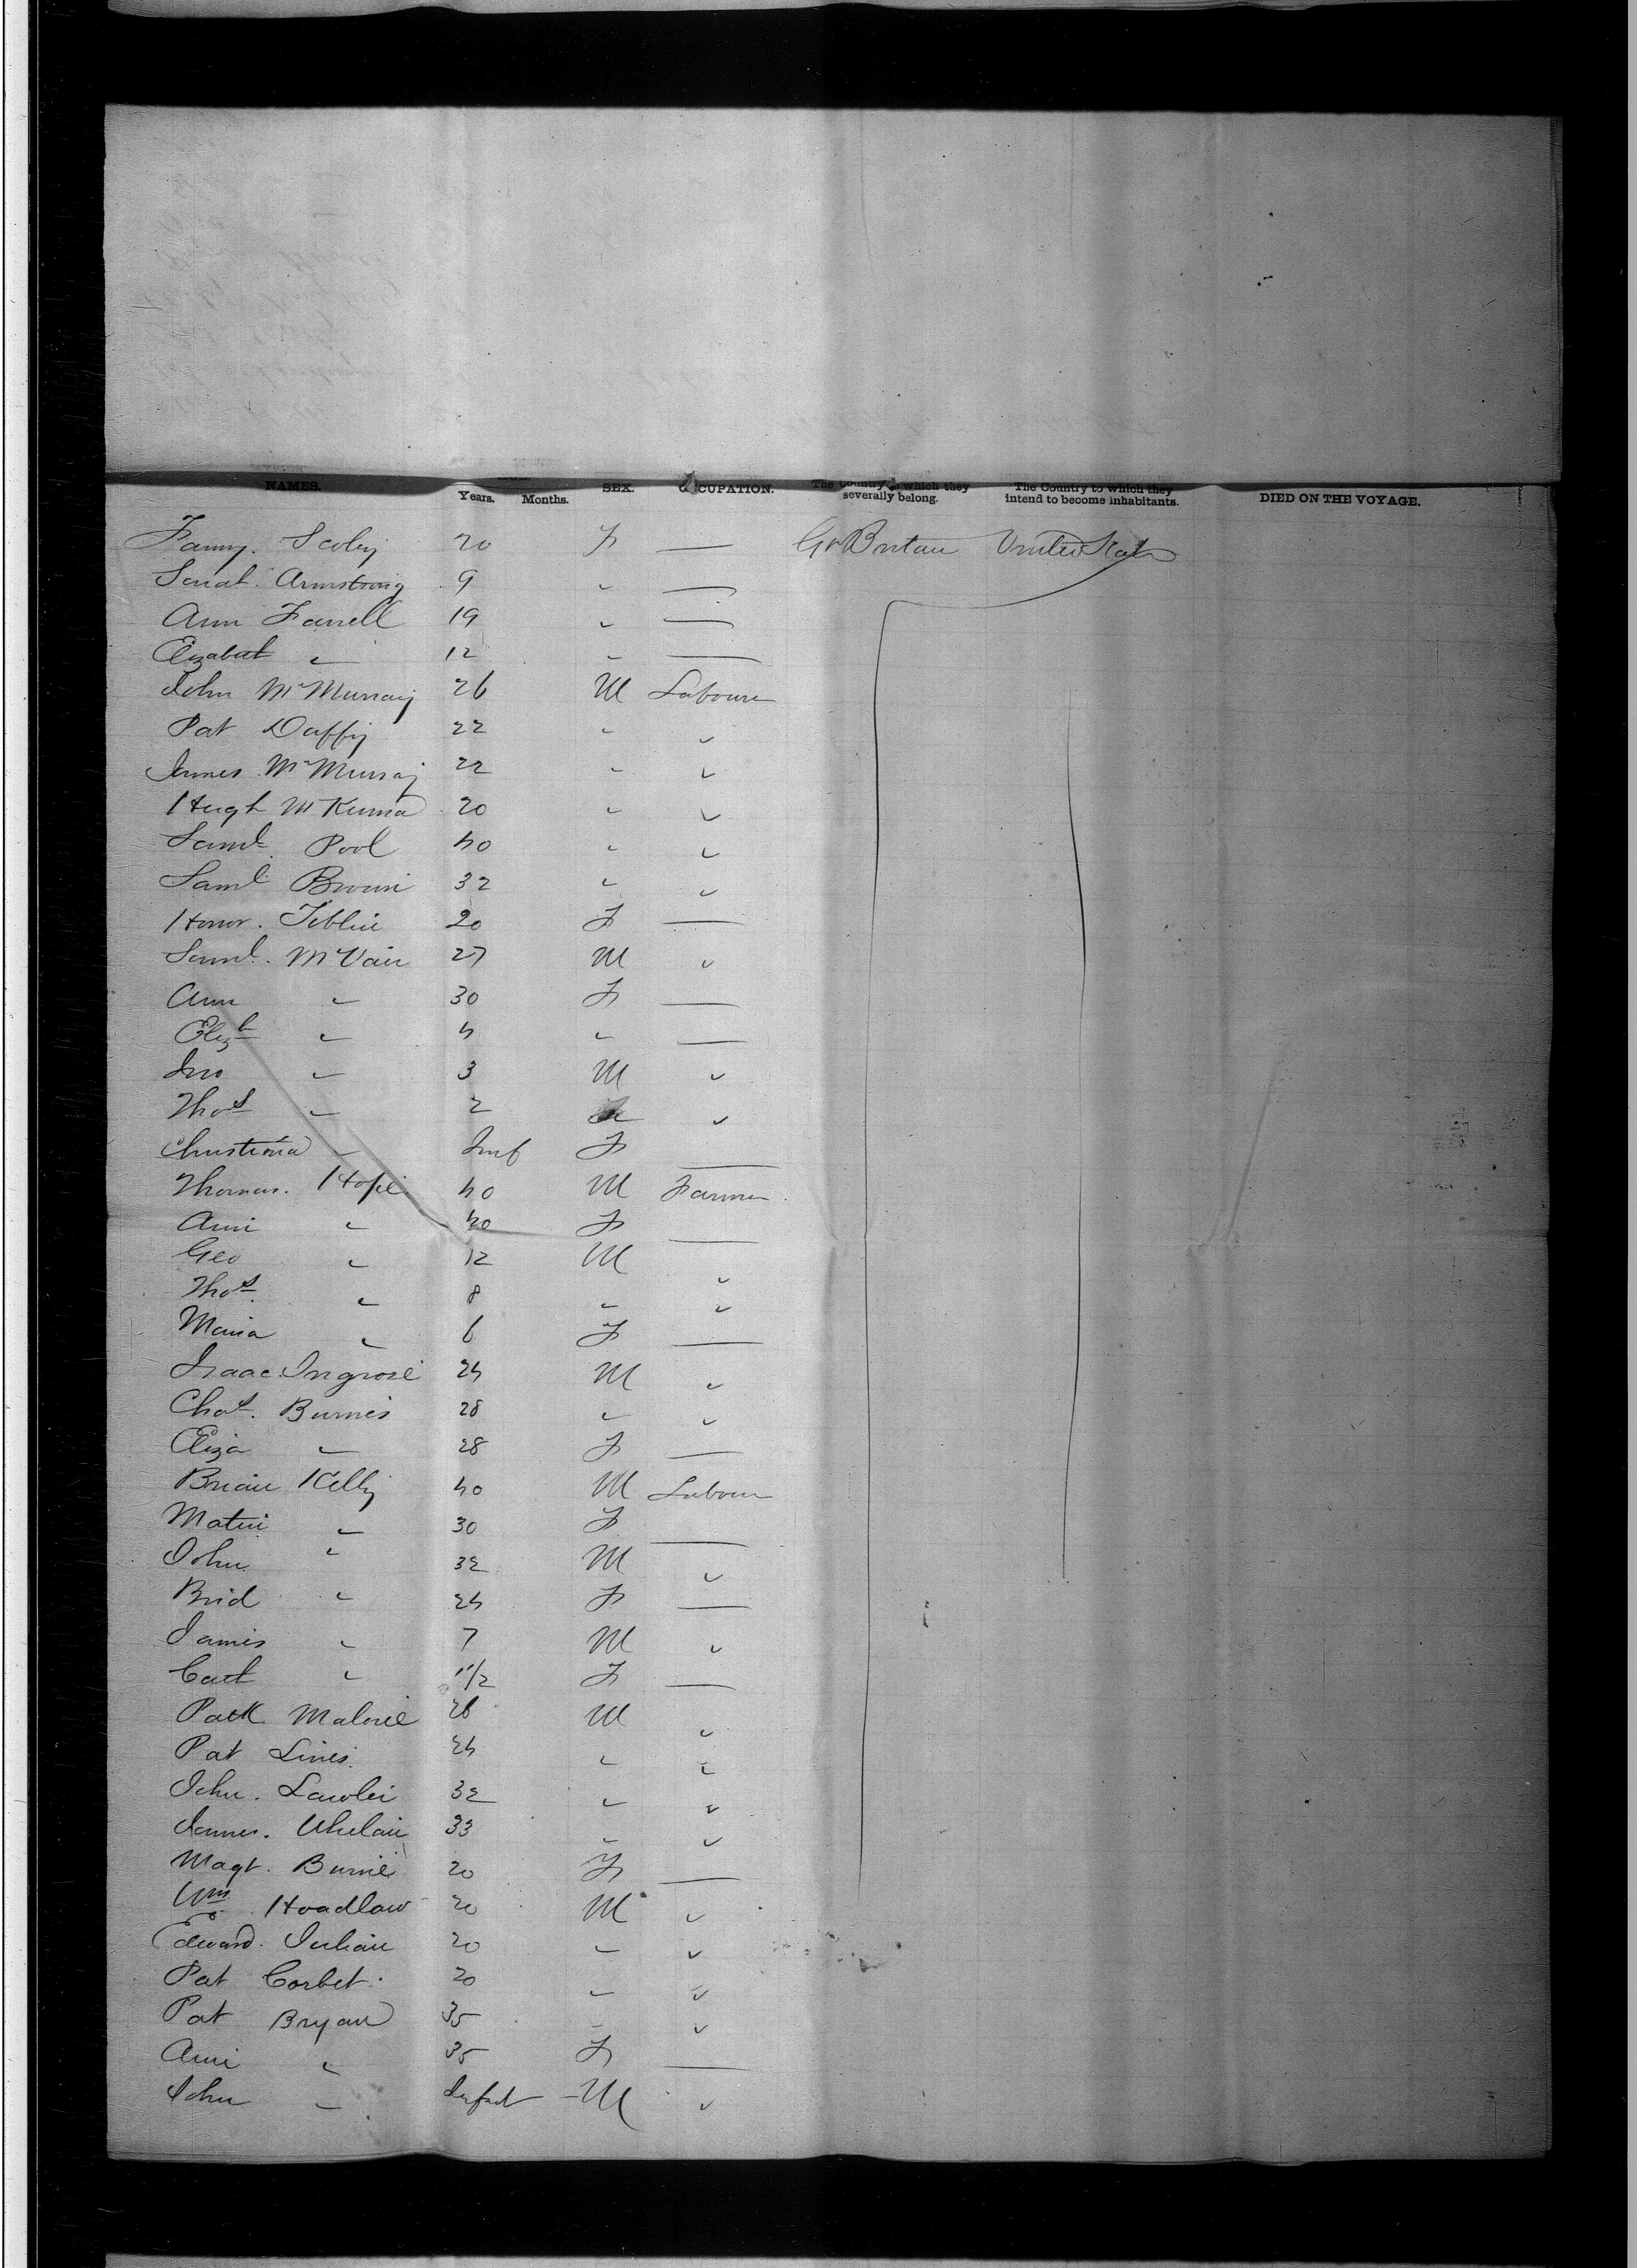 NAMES. Years. Months. SEX. OCCUPATION. The Country to which they severally belong. The Country to which they intend to become inhabitants. DIED ON THE VOYAGE.
Fanny. Scoley 20 F — Gt Britain United States
Sarah Armstrong 9 " —
Ann Farrell 19 " —
Elizabeth " 12 " —
John McMurray 26 M Labourer
Pat Duffy 22 " "
James McMurray 22 " "
Hugh McKenna 20 " "
Saml. Pool 40 " "
Saml. Brown 32 " "
Honor. 20 F —
Saml. McVair 27 M "
Ann " 30 F —
Elizh " 4 " —
Jno " 3 M "
Thos " 2 "
Christina " Inf F —
Thomas. Hope 40 M Farmer
Ann " 40 F —
Geo " 12 M "
Thos. " 8 " "
Maria " 6 F —
Isaac Ingrose 24 M "
Chas. Burnes 28 " "
Eliza " 28 F —
Brian Kelly 40 M Labourer
" 30 F —
John " 32 M "
Brid " 24 F —
James " 7 M "
Cath " 1 1/2 F —
Patk Malone 26 M "
Pat Lines. 24 " "
John. Lawler 32 " "
James. Whelan 33 " "
Magt. Burne 20 F —
Wm Hoadlaw 20 M "
Edward. Julian 20 " "
Pat Corbet. 20 " "
Pat Bryan 35 " "
Ann " 35 F —
John " Infant — M "